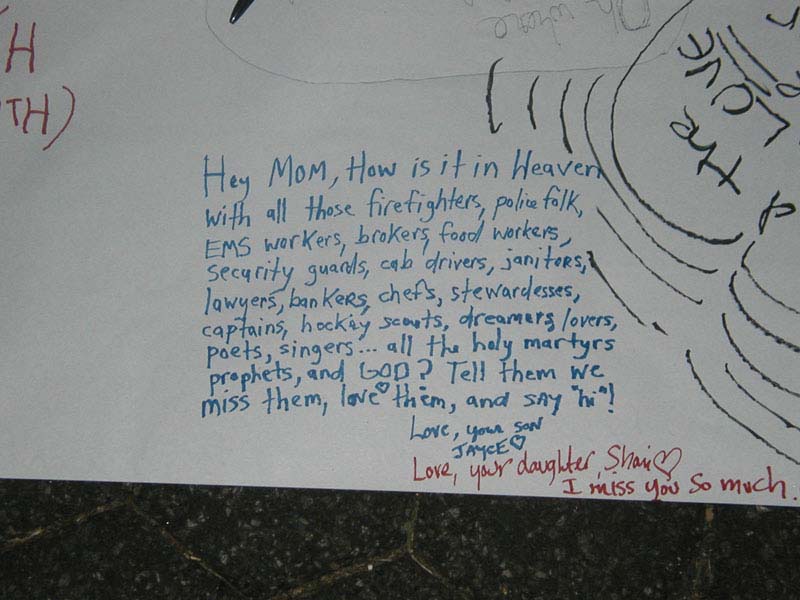 H
TH)
Oh where
the
LOVE
&
Hey Mom, How is it in Heaven
with all those firefighters, police folk,
EMS workers, brokers, food workers,
security guards, cab drivers, janitors,
lawyers, bankers, chefs, stewardesses,
captains, hockey scouts, dreamers, lovers,
poets, singers... all the holy martyrs
prophets, and GOD? Tell them we
miss them, love them, and say "hi"!
Love, your son
JAYCE
Love, your daughter, Shari
I miss you so much.